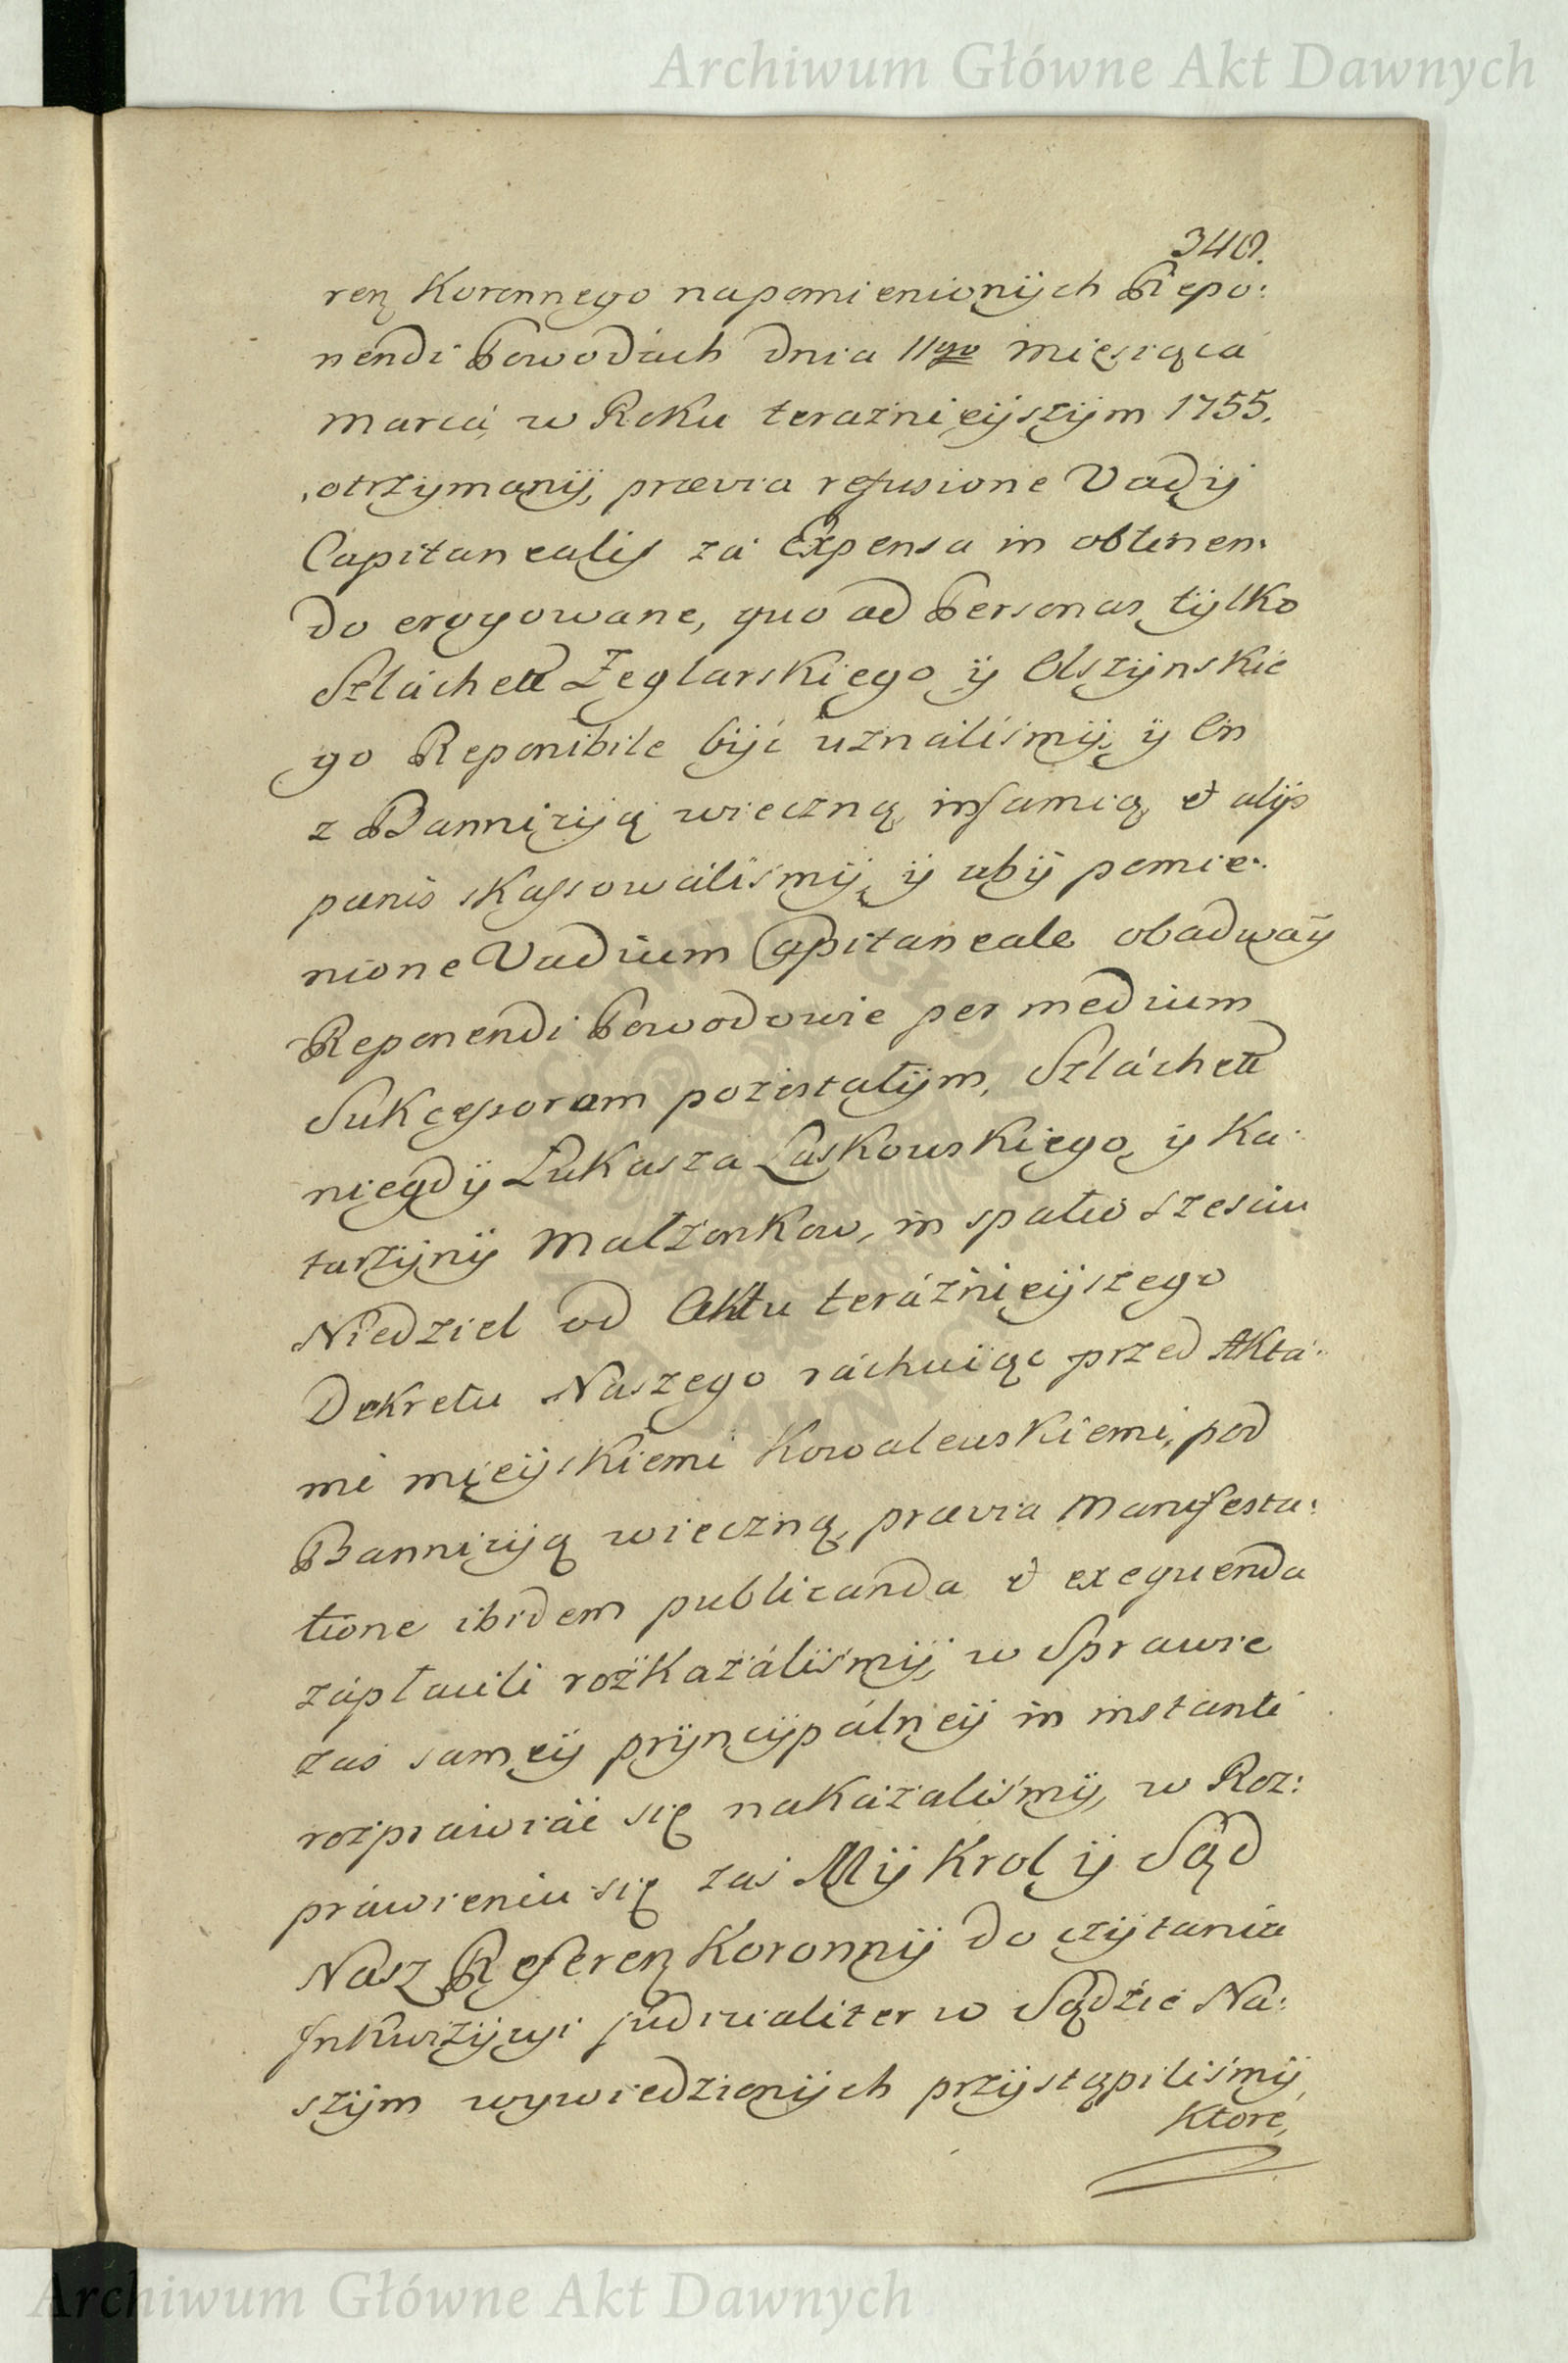 Archiwum Główne Akt Dawnych
340.
ren Koronnego napomienionych Repo:
nendi Powodach dnia 11go Miesiąca
Marca w Roku teraznieyszym 1755.
otrzymany, prævia refusione Vadij
Capitanealis za Expensa in obtinen:
do erogowane, quo ad Personas tylko
Szlachett Żeglarskiego y Olszynskie
go Reponibile być uznaliśmy, y On
z Bannicyją wieczną, infamią, et alijs
pœnis skassowaliśmy, y aby pomie:
nione Vadium Capitaneale obadway
Reponendi Powodowie per medium
Sukcessorom pozostałym, Szlachett
niegdy Łukasza Laskowskiego, y Ka:
tarzyny Małżonkow, in spatio sześciu
Niedziel od Aktu teráżnieyszego
Dekretu Naszego ráchuiąc przed Akta:
mi mieyskiemi Kowalewskiemi, pod
Bannicyją wieczną, prævia Manifesta:
tione ibidem publicanda et exequenda
zápłacili rozkazáliśmy, w Sprawie
zas samey pryncypálney in instanti
rozprawiáć się nakázaliśmy, w Roz:
práwieniu się zaś My Krol y Sąd
Nasz Referen Koronny do czytania
Inkwizycyi judicialiter w Sądzie Na:
szym wywiedzionych przystąpiliśmy,
Ktore,
Archiwum Główne Akt Dawnych